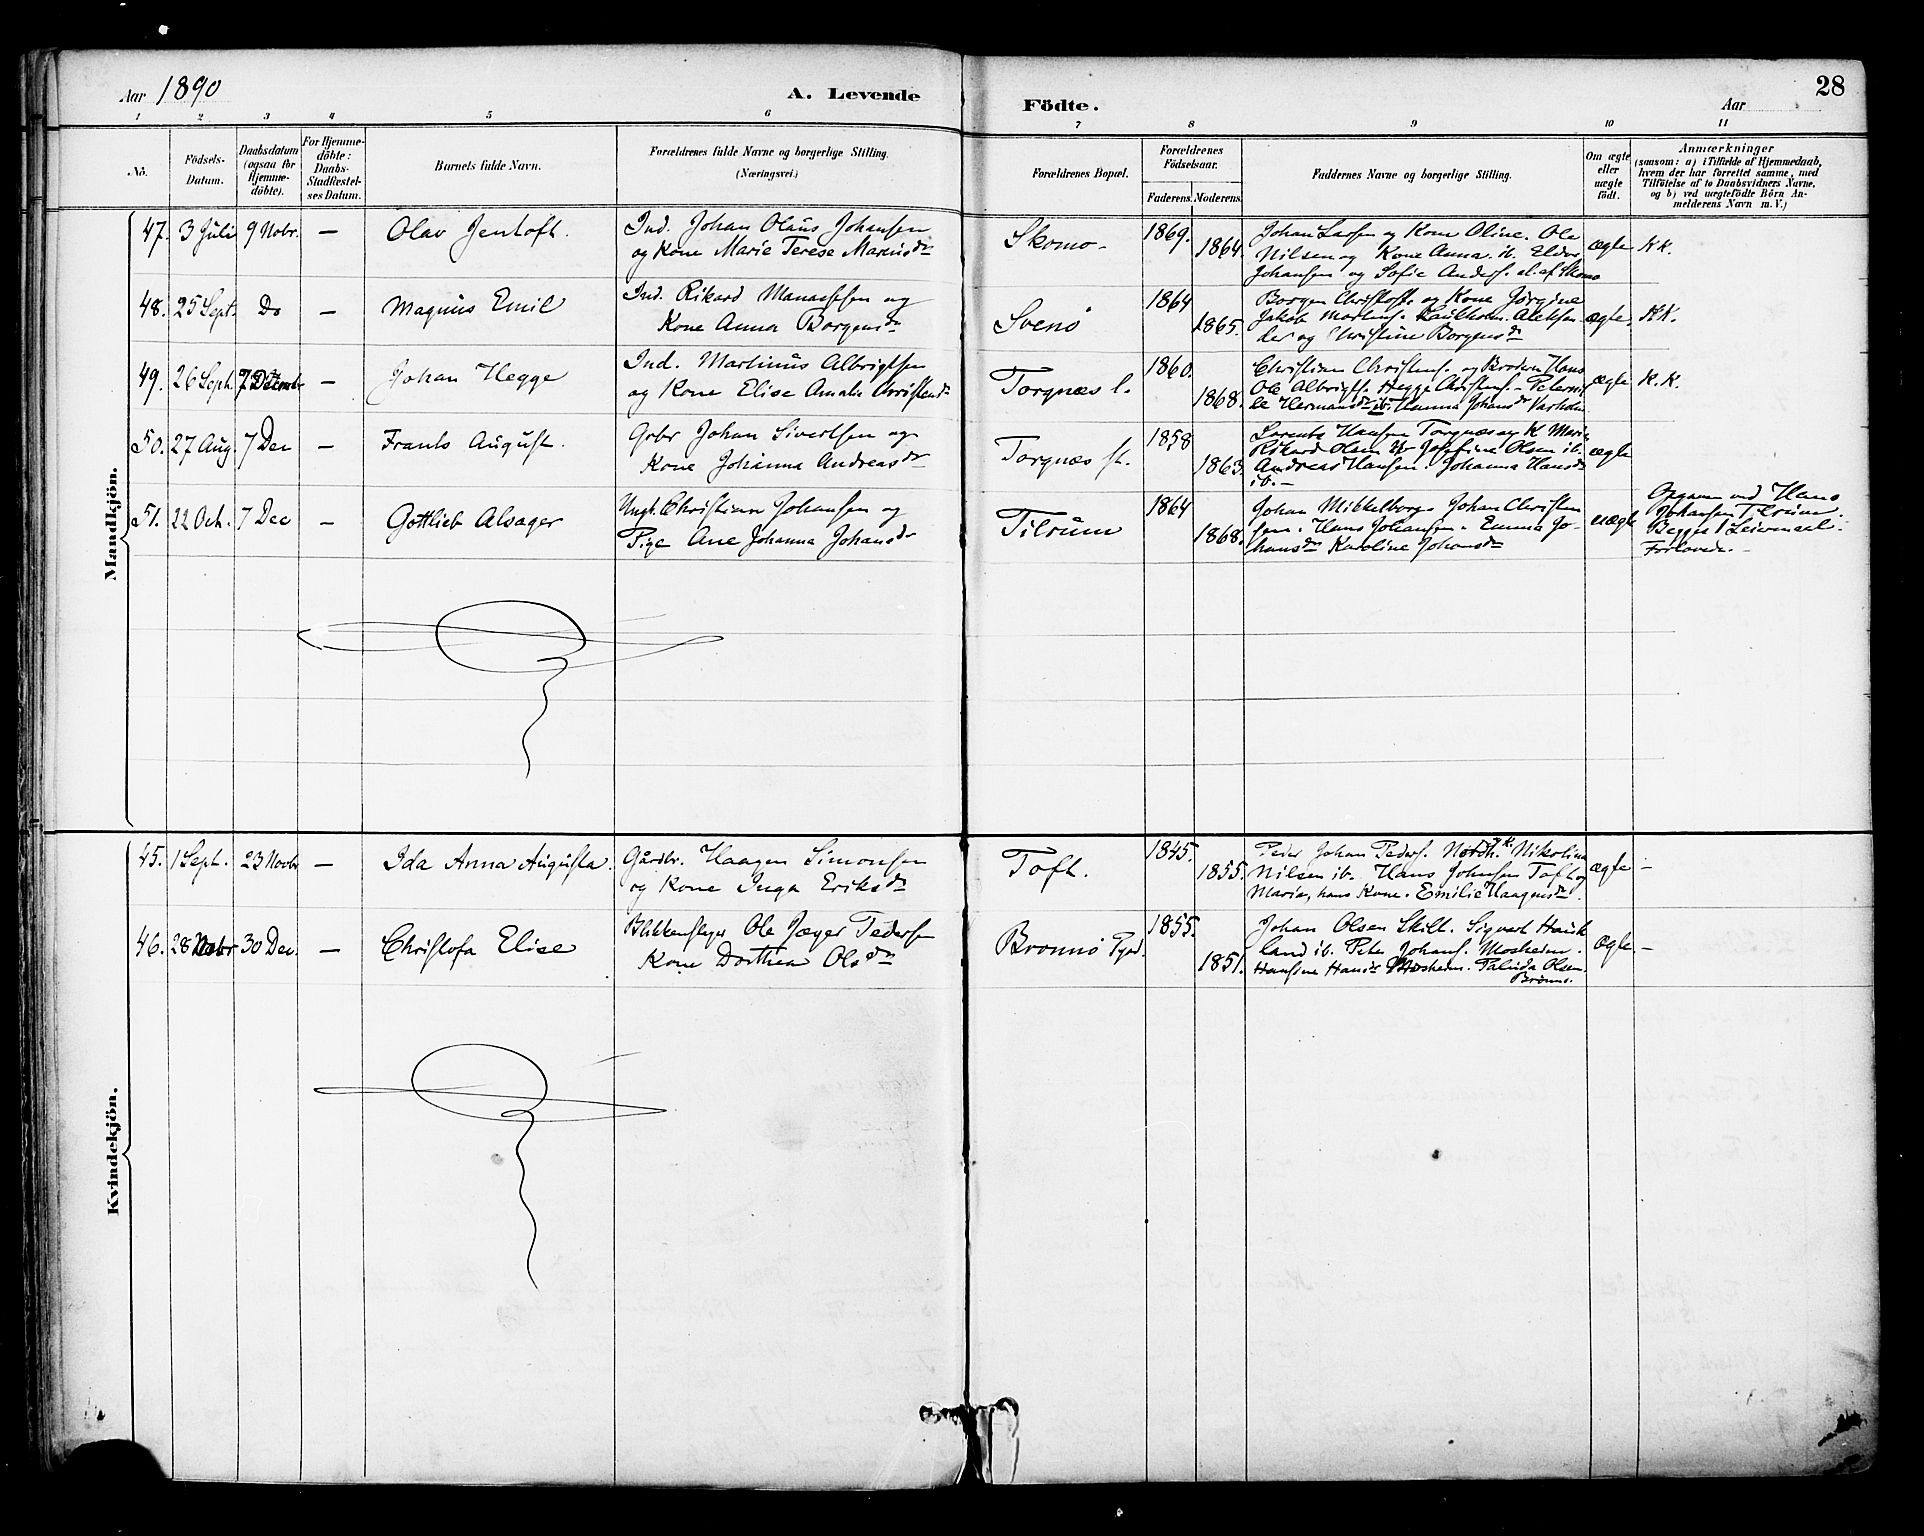 Aar 1890
A. Levende
Födte.
Aar
28
1 2 3 4 5 6 7 8 9 10 11
No.
Födsels-
Datum.
Daabsdatum
(ogsaa för
Hjemme-
döbte).
For Hjemme-
döbte:
Daabs-
Stadfæstel-
ses Datum.
Barnets fulde Navn.
Forældrenes fulde Navne og borgerlige Stilling.
(Næringsvei.)
Forældrenes Bopæl.
Forældrenes
Födselsaar.
Faderens. Moderens.
Faddernes Navne og borgerlige Stilling.
Om ægte
eller
uægte
födt.
Anmærkninger
(saasom: a) i Tilfælde af Hjemmedaab,
hvem der har forrettet samme, med
Tilföielse af to Daabsvidners Navne,
og b) ved uægtefödte Börn An-
melderens Navn m. V.)
Mandkjön.
47. 3 Juli 9 Nobr. — Olav Jentoft.
Ind. Johan Olaus Johansen
og Kone Marie Terese Marius dr
Skomo - 1869. 1864.
Johan Larsen og Kone Oline. Ole
Nilsen og Kone Anna ib.
Johansen og Sofie Anders. al. af Skomo
ægte K K.
48. 25 Sept. Do — Magnus Emil
Ind. Rikard Manassen og
Kone Anna Borgens dr
Svenö 1864 1865.
Borgen Christoff. og Kone Jörgine
Jakob Martens. Aleksan
der og Christine Borgens dr
ægte. K K.
49. 26 Sept. 7 Decembr — Johan Hegge
Ind. Martinus Albrigtsen
og Kone Elise Amalie Christens dr
Torgnæs l. 1860. 1868.
Christian Christens. og Broderen Hans
Ole Albrigts. Hegge Christens. - Peternil
le Hermans dr ib. Hanna Johans dr Varholm
ægte K. K.
50. 27 Aug. 7 Dec — Frants August.
Gbr Johan Sivertsen og
Kone Johanna Andreas dr
Torgnæs st. 1858 1863.
Lorents Hansen Torgnæs og K Marie
Rikard Olsen Josefine Olsen ib.
Andreas Hansen. Johanna Hans dr
ib. -
ægte
51. 22 Oct. 7 Dec — Gottlieb Alsager
Ungk. Christian Johansen og
Pige Ane Johanna Johans dr
Tilrum 1864 1868.
Johan Mikkelborg. Johan Christen
sen. Hans Johansen. Emma Jo-
hans dr Karoline Johans dr
uægte
Opgaven ved Hans
Johansen Tilrum.
Begges 1 Leiermaal.
Forlovede. -
Kvindekjön.
45. 1 Sept. 23 Nobr — Ida Anna Augusta.
Gårdbr. Haagen Simonsen
og Kone Inga Eriks dr
Toft. 1845. 1855.
Peder Johan Peders. Nordh. Nikolina
Nilsen ib. Hans Johnsen Toft og
Maria, hans Kone. Emilie Haagens dr.
ægte —
46. 28 Nobr 30 Dec. — Christofa Elise
Blikkenslager Ole Jæger Pedersen
Kone Dorthea Ols dr
Bronnö Pgd. 1855. 1851.
Johan Olsen Skilt. Sigvart Hauk
land ib. Peter Johans. Mosheim.
Hansine Hans dr Mosheim. Palida Olsen
Brönnö.
Ægte. —